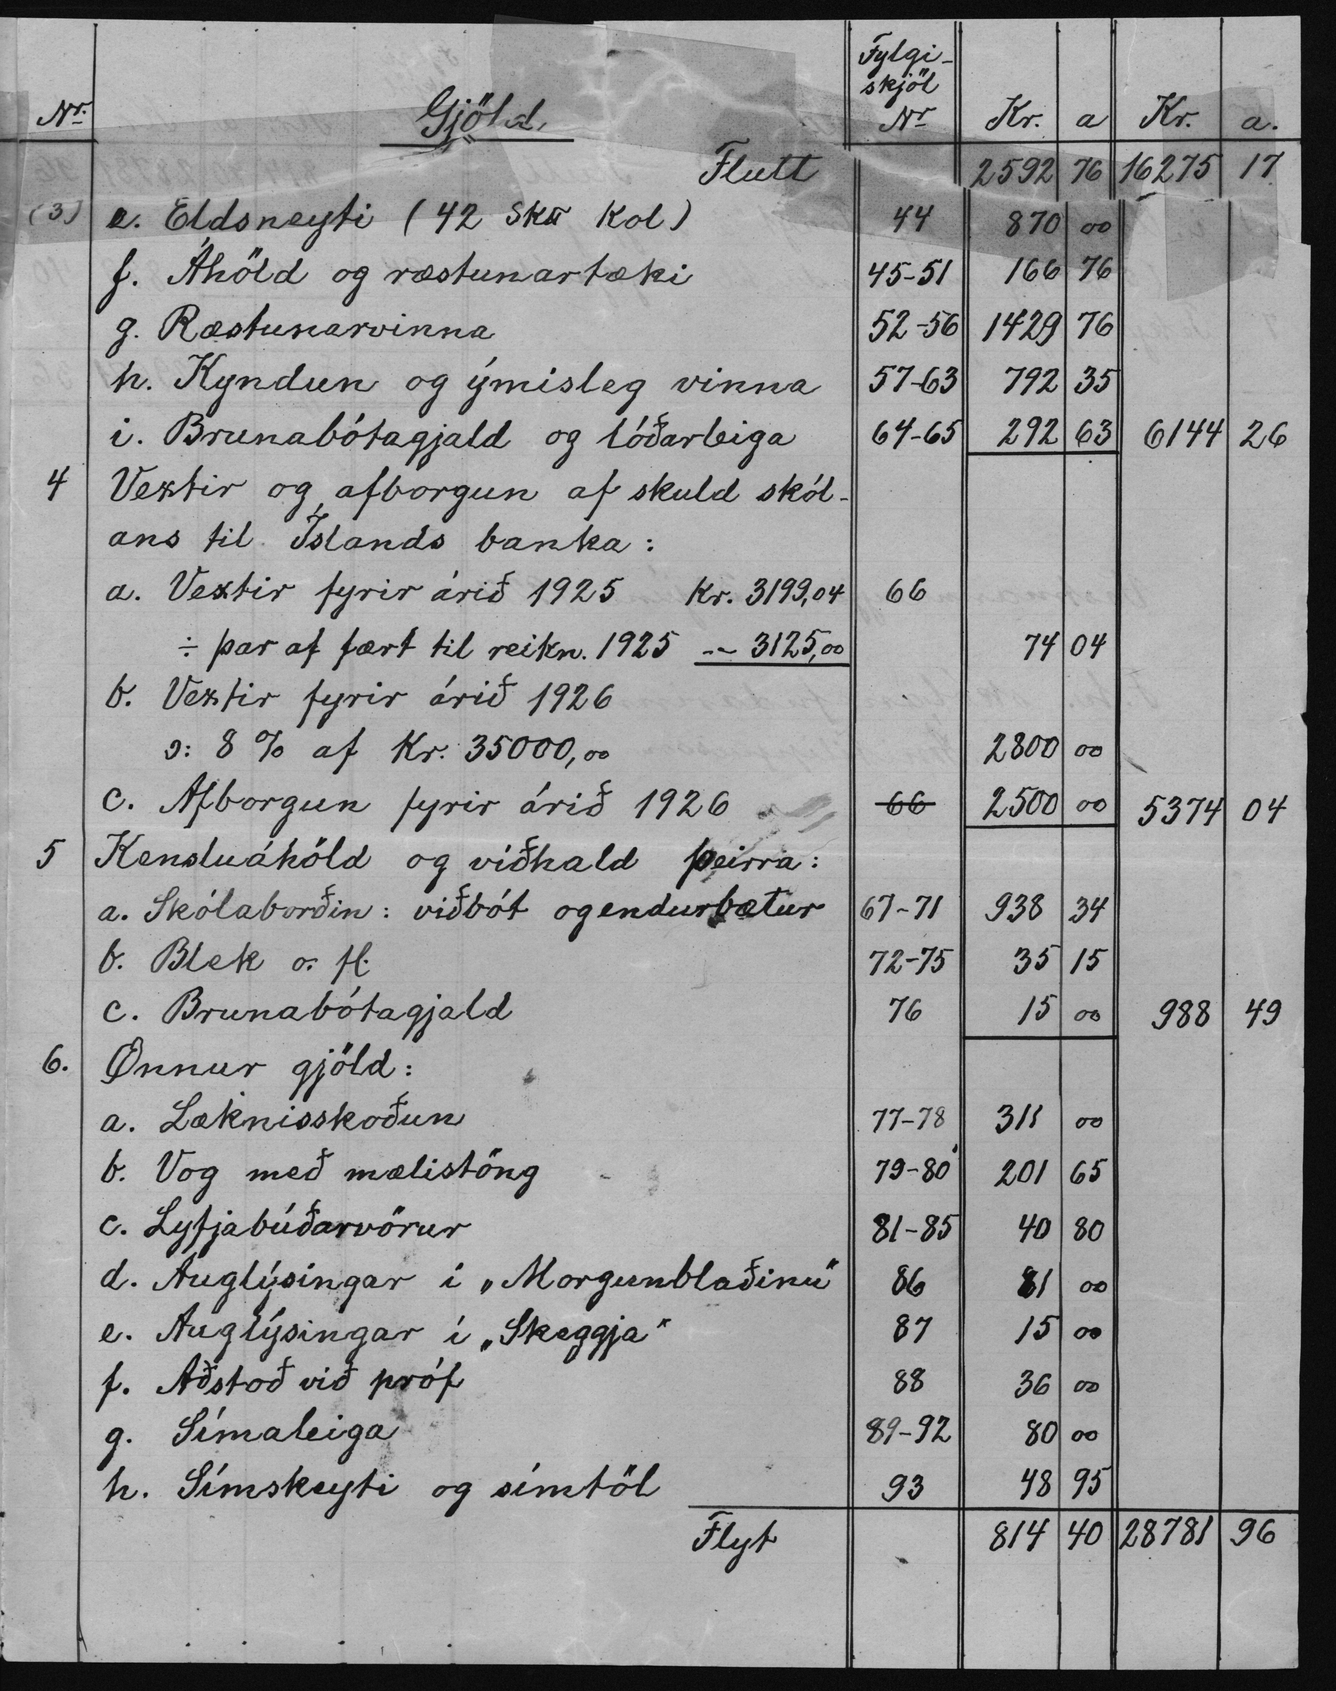 Nr. Gjöld. Fylgi-skjöl Nr Kr. a Kr. a.
Flutt 2592 76 16275 17
(3) e. Eldsneyti (42 Skᵈ Kol) 44 870 00
f. Áhöld og ræstunartæki 45-51 166 76
g. Ræstunarvinna 52-56 1429 76
h. Kyndun og ýmisleg vinna 57-63 792 35
i. Brunabótagjald og lóðarleiga 64-65 292 63 6144 26
4 Vextir og afborgun af skuld skól-
ans til Íslands banka:
a. Vextir fyrir árið 1925 Kr. 3199,04 66
÷ þar af fært til reikn. 1925 -~ 3125,00 74 04
b. Vextir fyrir árið 1926
ɔ: 8 % af Kr. 35000,00 2800 00
c. Afborgun fyrir árið 1926 66 2500 00 5374 04
5 Kensluáhöld og viðhald þeirra:
a. Skólaborðin: viðbót og endurbætur 67-71 938 34
b. Blek o. fl. 72-75 35 15
c. Brunabótagjald 76 15 00 988 49
6. Önnur gjöld:
a. Læknisskoðun 77-78 311 00
b. Vog með mælistöng 79-80 201 65
c. Lyfjabúðarvörur 81-85 40 80
d. Auglýsingar í „Morgunblaðinu" 86 81 00
e. Auglýsingar í „Skeggja" 87 15 00
f. Aðstoð við próf 88 36 00
g. Símaleiga 89-92 80 00
h. Símskeyti og símtöl 93 48 95
Flyt 814 40 28781 96